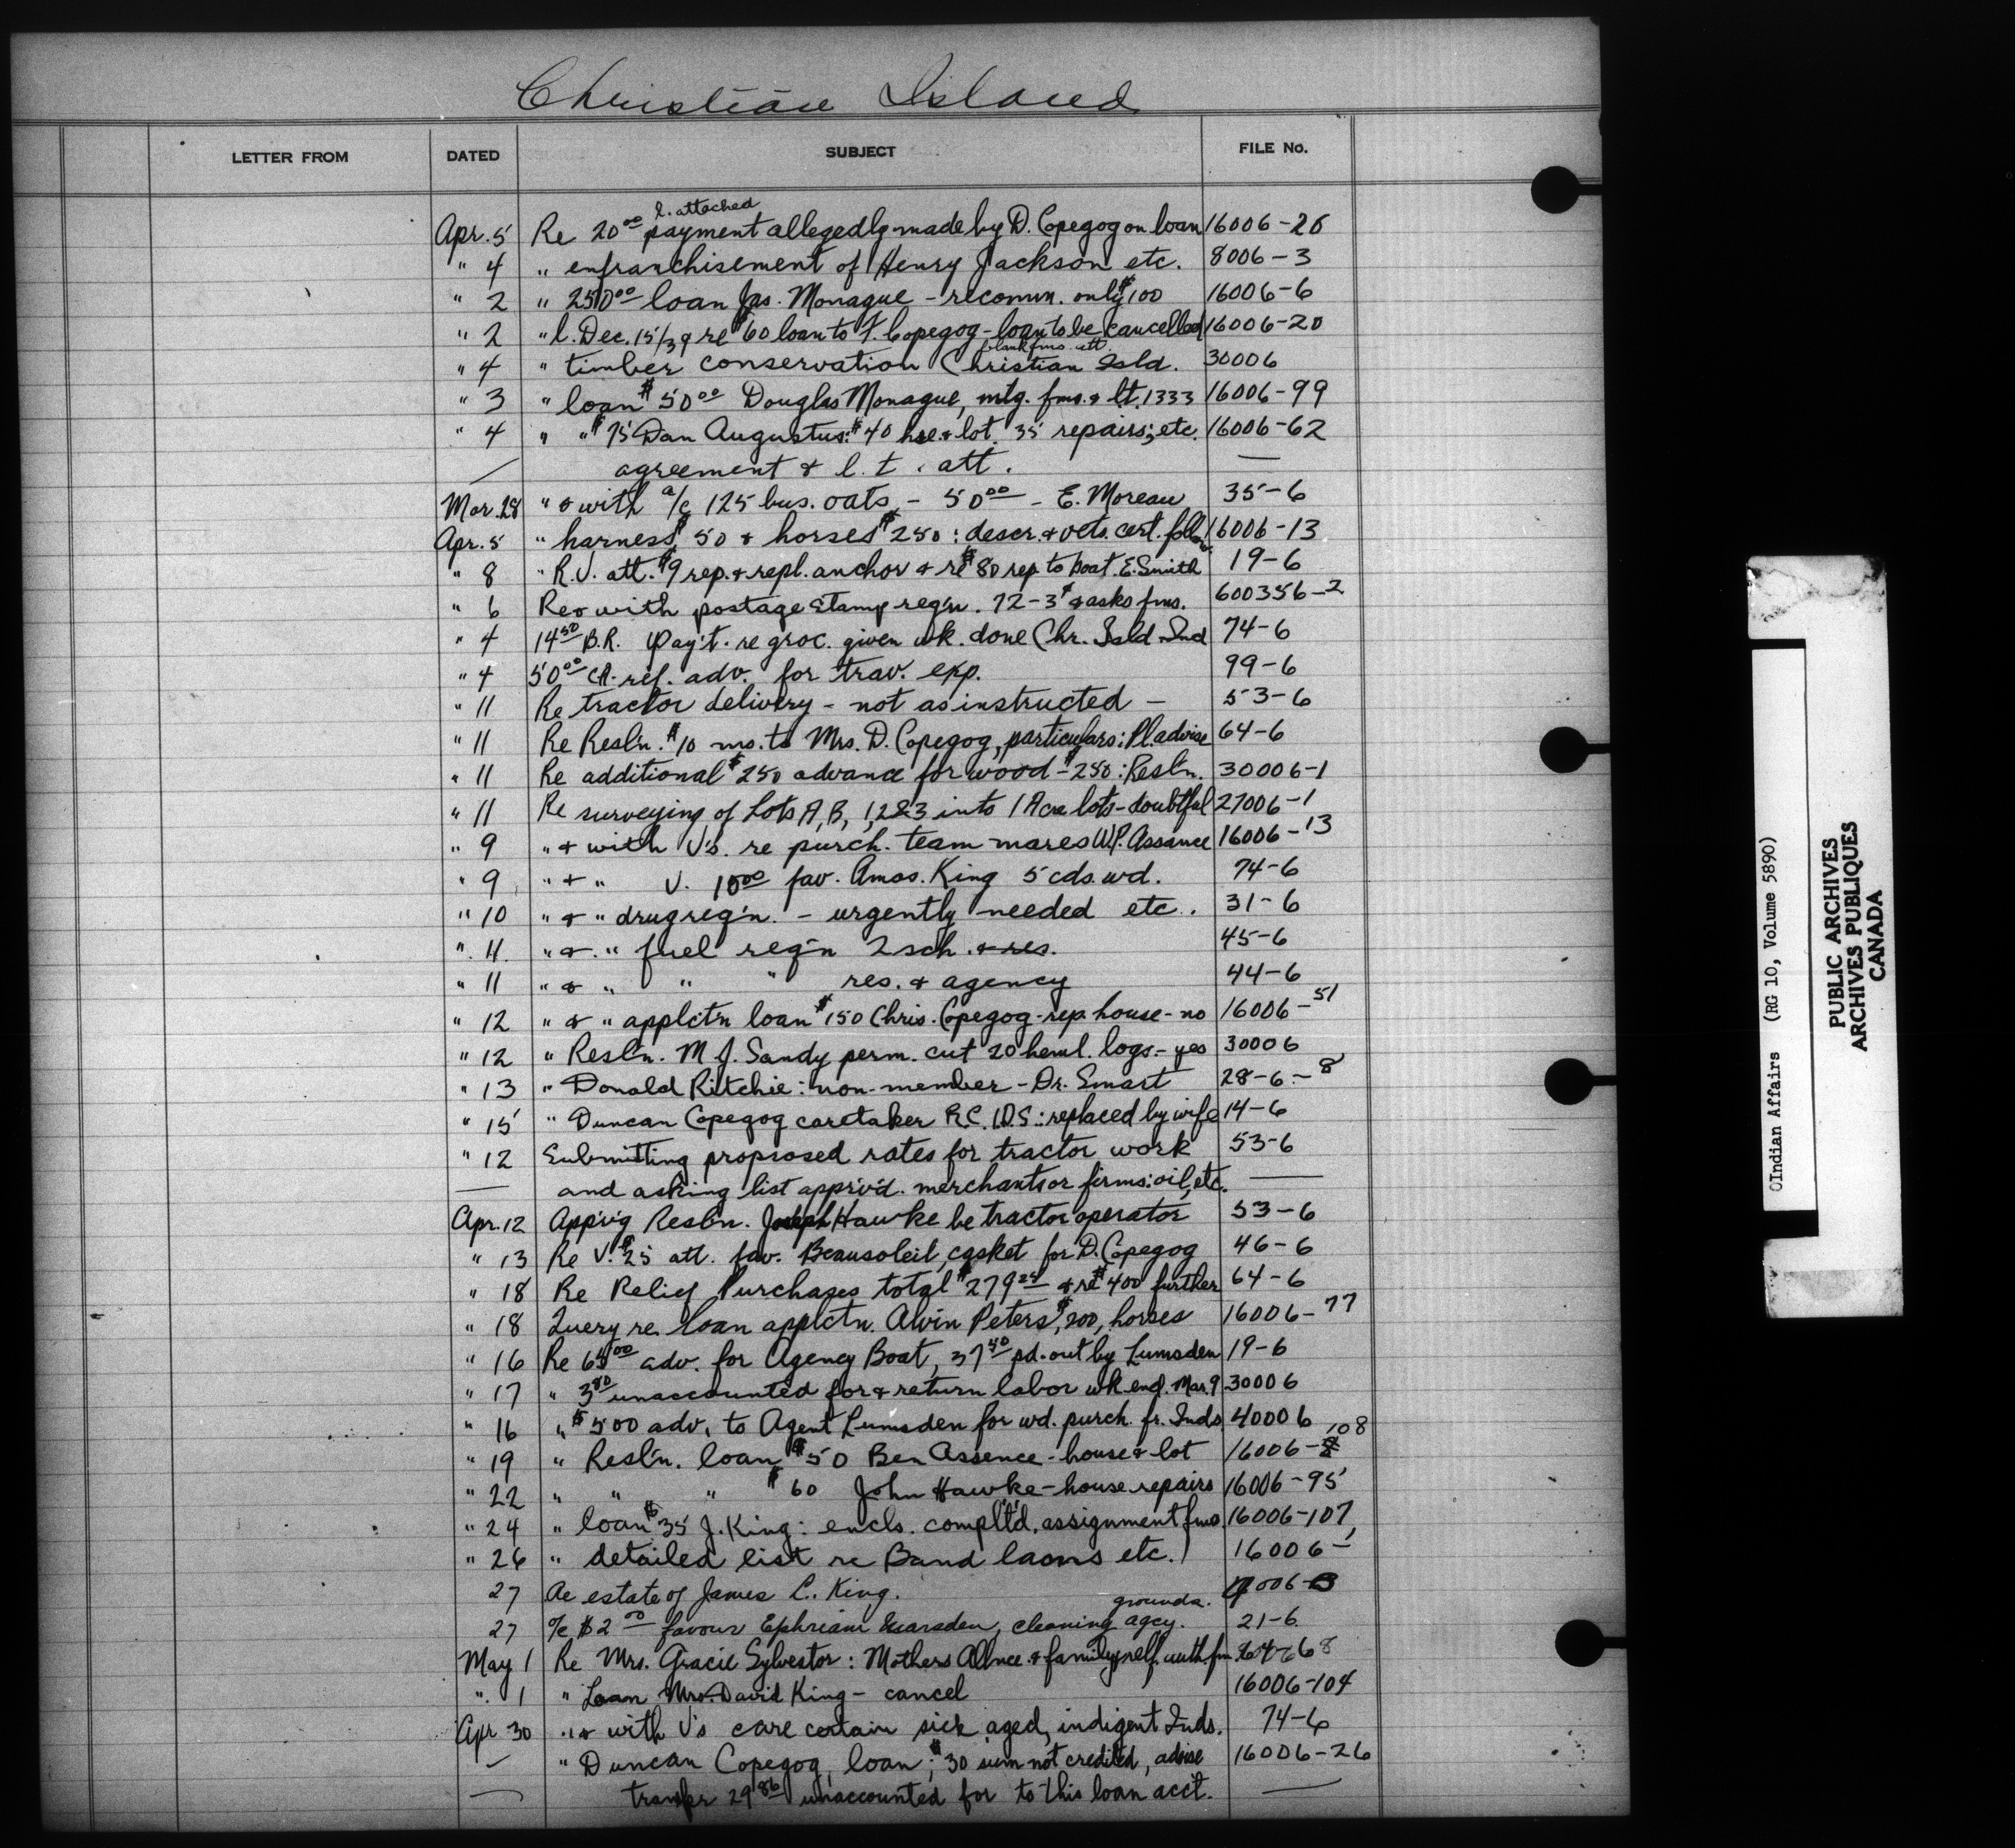 Christian Island
LETTER FROM DATED SUBJECT FILE No.
l. attached
Apr. 5 Re 20 00 payment allegedly made by D. Copegog on loan 16006-26
" 4 " enfranchisement of Henry Jackson etc. 8006-3
" 2 " 250 00 loan Jas. Monague - recomm. only $100 16006-6
" 2 " l. Dec. 15/39 re $60 loan to F. Copegog - loan to be cancelled 16006-20
blank fms. att.
" 4 " timber conservation Christian Isld. 30006
" 3 " loan $50 00 Douglas Monague, mtg. fms. & lt. 1333 16006-99
" 4 " " $75 Dan Augustus: $40 hse. & lot. 35 repairs; etc. 16006-62
— agreement & l. t. att. —
Mar. 28 " & with a/c 125 bus. oats - 50 00 - E. Moreau 35-6
Apr. 5 " harness $50 & horses $250: descr. & vets. cert. follow 16006-13
" 8 " R.V. att. $9 rep. & repl. anchor & re $80 rep. to boat. E. Smith 19-6
" 6 Re & with postage stamp reqn. 72-3¢ & asks fms. 600356-2
" 4 14 50 B.R. Pay't. re groc. given wk. done Chr. Isld Ind 74-6
" 4 50 00 ref. adv. for trav. exp. 99-6
" 11 Re tractor delivery - not as instructed - 53-6
" 11 Re Resl'n. $10 mo. to Mrs. D. Copegog, particulars: Pl. advise 64-6
" 11 Re additional $250 advance for wood - $250: Resl'n. 30006-1
" 11 Re surveying of Lots A, B, 1, 2 & 3 into 1 Acre lots - doubtful 27006-1
" 9 " & with V's. re purch. team mares W.P. Assance 16006-13
" 9 " & " V. 10 00 fav. Amos. King 5 cds. wd. 74-6
" 10 " & " drug req'n. - urgently needed etc. 31-6
" 11. " & " fuel req'n 2 sch. & res. 45-6
" 11 " & " " " res. & agency 44-6
" 12 " & " applct'n loan $150 Chris. Copegog - rep. house - no 16006-51
" 12 " Resl'n. M J. Sandy perm. cut 20 heml. logs. - yes 30006
" 13 " Donald Ritchie: non-member - Dr. Smart 28-6-8
" 15 " Duncan Copegog caretaker R.C. I.D.S.: replaced by wife 14-6
" 12 Submitting proposed rates for tractor work 53-6
— and asking list apprv'd. merchants or firms: oil, etc. —
Apr. 12 App'v'g Resl'n. Joseph Hawke be tractor operator 53-6
" 13 Re V. $25 att. fav. Beausoleil, casket for D. Copegog 46-6
" 18 Re Relief Purchases total $279 24 & re $400 further 64-6
" 18 Query re. loan applct'n. Alvin Peters, $200, horses 16006-77
" 16 Re 65 00 adv. for Agency Boat, 37 40 pd. out by Lumsden 19-6
" 17 " 3 80 unaccounted for & return labor wk. end. Mar. 9 30006
" 16 " $500 adv. to Agent Lumsden for wd. purch. fr. Inds 40006
" 19 " Resl'n. loan $50 Ben Assence - house & lot 16006-108
" 22 " " " $60 John Hawke - house repairs 16006-95
" 24 " loan $35 J. King: encls. compl't'd. assignment fms. 16006-107
" 26 " detailed list re Band laons etc. 16006-
27 Re estate of James C. King.
grounds.
27 a/c $2 00 favour Ephriam Marsden, cleaning agcy. 21-6
May 1 Re Mrs. Gracie Sylvestor: Mothers Allnce. &
". 1 " Loan Mrs. David King - cancel 16006-104
Apr 30 " & with V's care certain sick, aged, indigent Inds. 74-6
— " Duncan Copegog, loan; $30 sum not credited, advise 16006-26
— transfer 29 86 unaccounted for to this loan acct. —
©Indian Affairs (RG 10, Volume 5890)
PUBLIC ARCHIVES
ARCHIVES PUBLIQUES
CANADA